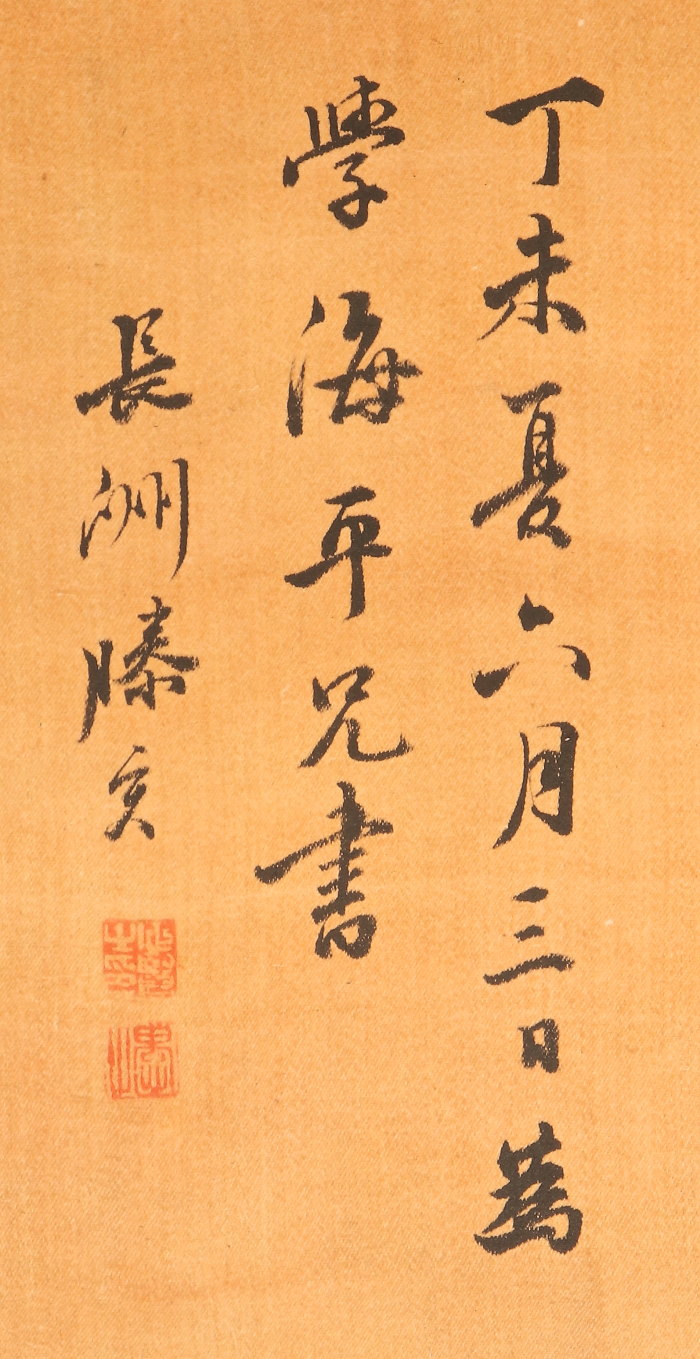 丁未夏六月三日為
學海平兄書
長洲滕亥